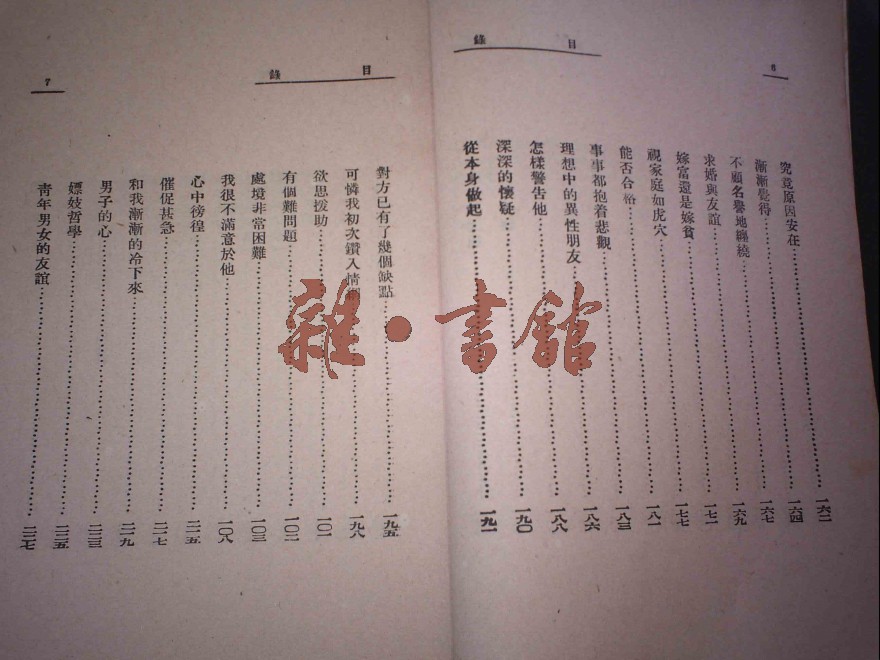 6
目錄
究竟原因安在……一六二
漸漸覺得……一六四
不顧名譽地纏繞……一六七
求婚與友誼……一六九
嫁富還是嫁貧……一七一
視家庭如虎穴……一七七
能否合格……一八一
事事都抱着悲觀……一八三
理想中的異性朋友……一八六
怎樣警告他……一八八
深深的懷疑……一九〇
從本身做起……一九一
目錄
7
對方已有了幾個缺點……一九五
可憐我初次鑽入情……一九八
欲思援助……二〇一
有個難問題……二〇二
處境非常困難……二〇三
我很不滿意於他……二〇八
心中徬徨……二一五
催促甚急……二一七
和我漸漸的冷下來……二一九
男子的心……二二三
嫖妓哲學……二二五
青年男女的友誼……二二七
雜·書館